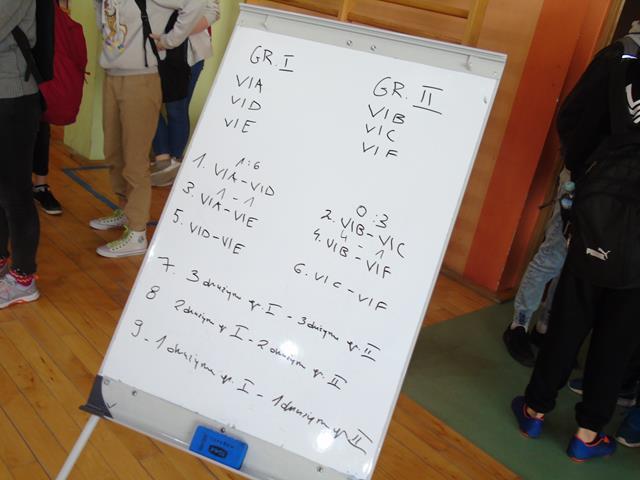 GR. I
VIA
VID
VIE
GR. II
VIB
VIC
VIF
1:6
1. VIA-VID
1-1
3. VIA-VIE
5. VID-VIE
0:3
2. VIB-VIC
4-1
4. VIB-VIF
6. VIC-VIF
7. 3 drużyna gr. I - 3 drużyna gr. II
8 2 drużyna gr I - 2 drużyna gr. II
9 - 1 drużyna gr. I - 1 drużyna gr II
PUMA